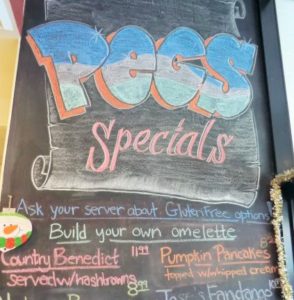 PEGS
Specials
Ask your server about Gluten Free options
Build your own omelette
Country Benedict 11.99
served w/hashbrowns 8.99
Pumpkin Pancakes
topped w/whipped cream
Fandango